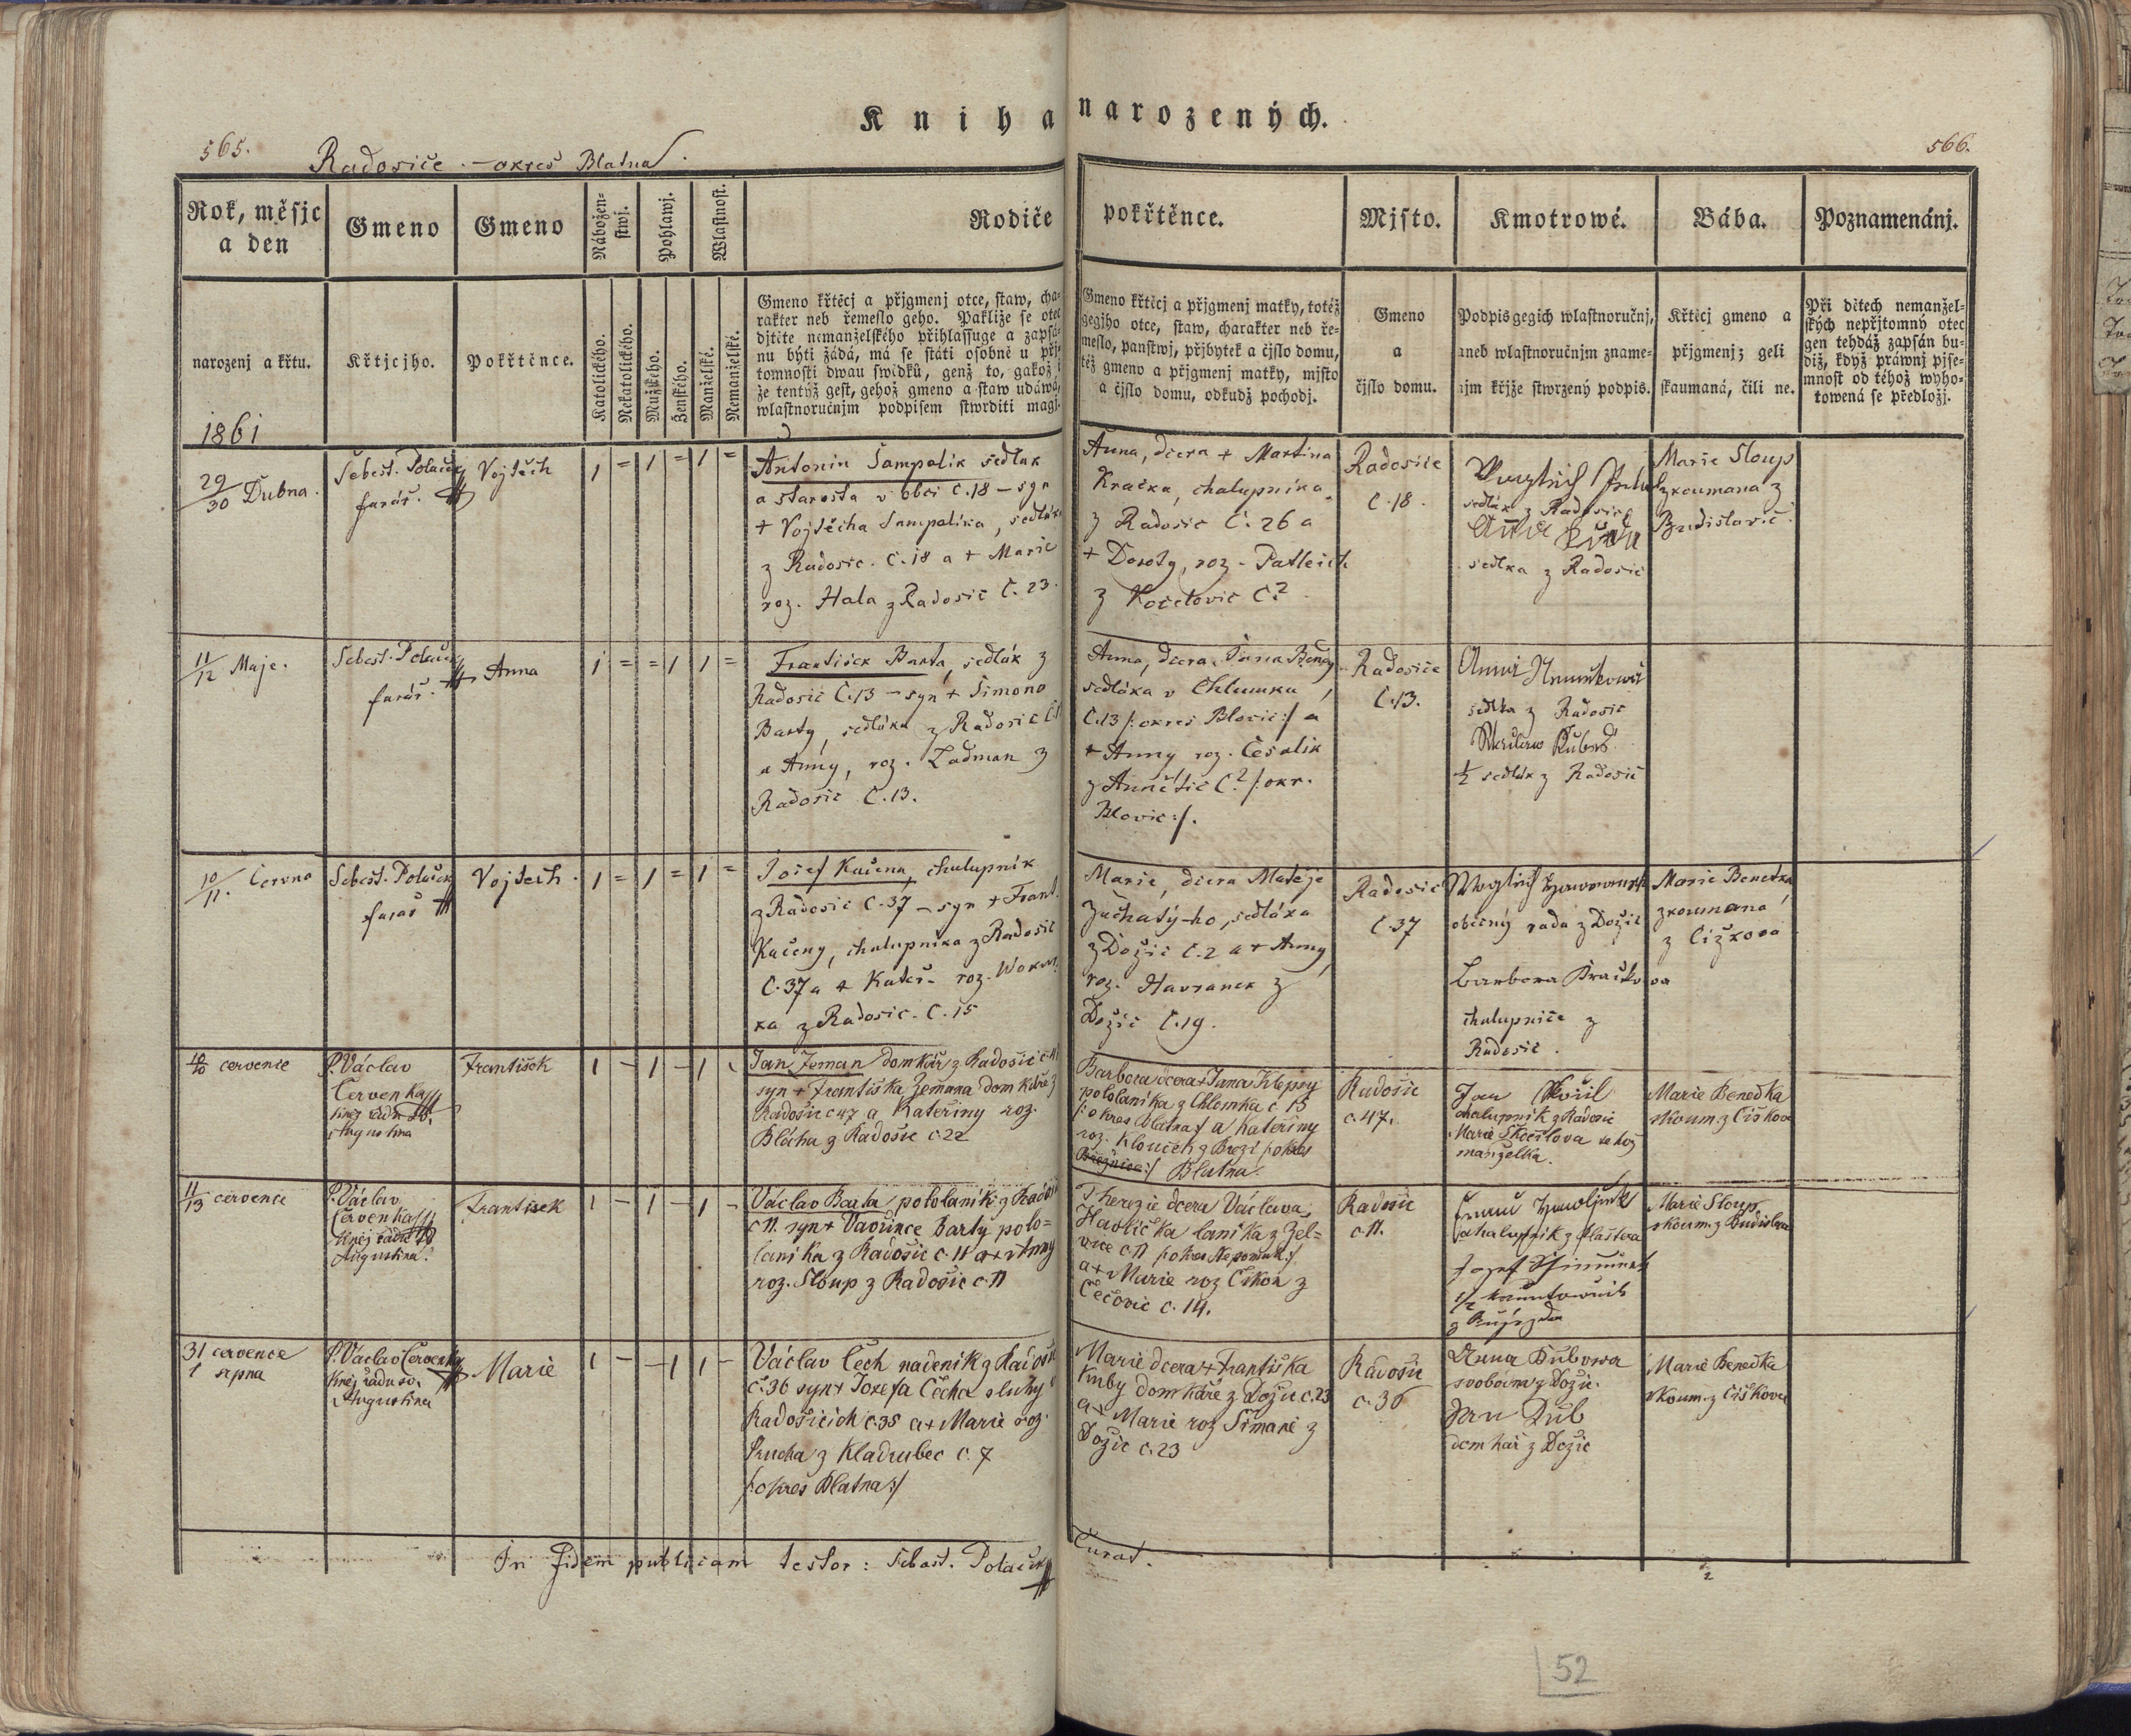 Kniha narozených.
565.
Radosice - okres Blatna.
566.
Rok, měsjc a den
narozenj a křtu.
Gmeno
Křtjcjho.
Gmeno
Pokřtěnce.
Nábožen-
stwj.
Katolického.
Nekatolického.
Pohlawj.
Mužského.
Ženského.
Wlastnost.
Manželské.
Nemanželské.
Rodiče pokřtěnce.
Gmeno křtěcj a přjgmenj otce, staw, cha-
rakter neb řemeslo geho. Pakliže se otec
djtěte nemanželského přihlassuge a zapsá-
nu býti žádá, má se státi osobně u přj-
tomnosti dwau swědků, genž to, gakož i
že tentýž gest, gehož gmeno a staw udáwá,
wlastnoručnjm podpisem stwrditi magj.
Gmeno křtěcj a přjgmenj matky, totéž
gegjho otce, staw, charakter neb ře-
meslo, panstwj, přjbytek a čjslo domu,
též gmeno a přjgmenj matky, mjsto
a čjslo domu, odkudž pochodj.
Mjsto.
Gmeno
a
čjslo domu.
Kmotrowé.
Podpis gegich wlastnoručnj,
aneb wlastnoručnjm zname-
njm křjže stwrzený podpis.
Bába.
Křtěcj gmeno a
přjgmenj; geli
skaumaná, čili ne.
Poznamenánj.
Při dětech nemanžel-
ských nepřjtomný otec
gen tehdáž zapsán bu-
diž, když práwnj pjse-
mnost od téhož wyho-
towená se předložj.
1861
29/30 Dubna.
Sebest. Polaček
farář.
Vojtěch
1 = 1 = 1 =
Antonin Sampalik sedlak
a starosta v obci č.18 - syn
+ Vojtěcha Sampalíka, sedláka
z Radosic. č.18 a + Marie
roz. Hala z Radosic č. 23.
Anna, dcera + Martina
Kračka, chalupníka
z Radosic č. 26 a
+ Doroty, roz.
z Kocelovic č.?
Radosice
č.18.
sedlák z Radosic
sedlka z Radosic
Marie Sloup
zkoumana z
Budislavic.
11/12 Maje.
Sebest. Polaček
farář.
Anna
1 = = 1 1 =
František Barta, sedlák z
Radosic č.13 - syn + Šimona
Barty, sedláka z Radosic
a Anny, roz. Ladman z
Radosic č.13.
Anna, dcera Jana
sedláka v Chlumku
č.13 /: okres Blovic :/ a
+ Anny roz.
č.? /: okr.
Blovic :/.
Radosice
č.13.
Anna
sedlka z Radosic
½ sedlák z Radosic
10/11. Června
Sebest. Polaček
farář
Vojtech.
1 = 1 = 1 =
Josef Kučena, chalupník
z Radosic č.37 - syn + Frant.
Kučeny, chalupníka z Radosic
č.37 a + Kateř. roz.
z Radosic. č.15
Marie, dcera Matěje
sedláka
z Dožic č.2 a + Anny
roz. Havranek z
Dožic č.19.
Radosic
č.37
obecný rada z Dožic
Barbora Kračkova
chalupnice z
Radosic.
Marie Benedka
zkoumana
z Čížkova
10 července
P. Václav
Červenka
kněz řádu sv.
Augustina
František
1 - 1 - 1 -
Jan Zeman domkář z Radošic
syn + Františka Zemana domkáře z
Radošic č 47 a Kateřiny roz.
Blácha z Radošic č.22
Barbora dcera + Jana Klepsy
pololanika z Chlomka č 13
/: okres Blatna :/ a Kateřiny
roz. Klouček z Březí /: okres
Březnice :/ Blatna.
Radošic
č.47.
Jan Skočil
chalupník z Radosic
Marie Skočilova tehož
manželka.
Marie Benedka
skoum. z Čiškova
11/13 července
P. Václav
Červenka
kněz řádu sv
Augustina.
Frantisek
1 - 1 - 1 -
Václav Barta pololanik z Radošic
č 11. syn + Vavřince Barty polo-
lanika z Radošic č. 11 a + Anny
roz. Sloup z Radošic č. 11
Therezie dcera Václava
Havlíčka lanika z Žel-
vice č 11 /: okres Nepomuk :/
a + Marie roz Čikon z
Čečovic č. 14.
Radosic
č. 11.
chalupník z Klaštera
Josef
Marie Sloup
skoum. z Budislavic
31 července
1 srpna
P. Václav Červenka
kněz řádu sv.
Augustina
Marie
1 - - 1 1 -
Václav Čech nadeník z Radošic
č.36 syn + Josefa Čecha sluhy v
Radošicích č.35 a + Marie roz.
Prucha z Kladrubec č. 7
/: okres Blatna :/
Marie dcera + Františka
Kuby domkáře z Dožic č.23
a + Marie roz Šimane z
Dožic č.23
Radošic
č. 36
Anna Kubowa
svobodna z Dožic.
Jan Kub
domkař z Dožic
Marie Benedka
skoum. z Čiškova
In fidem publicam testor: Sebast. Polaček
Curat.
52